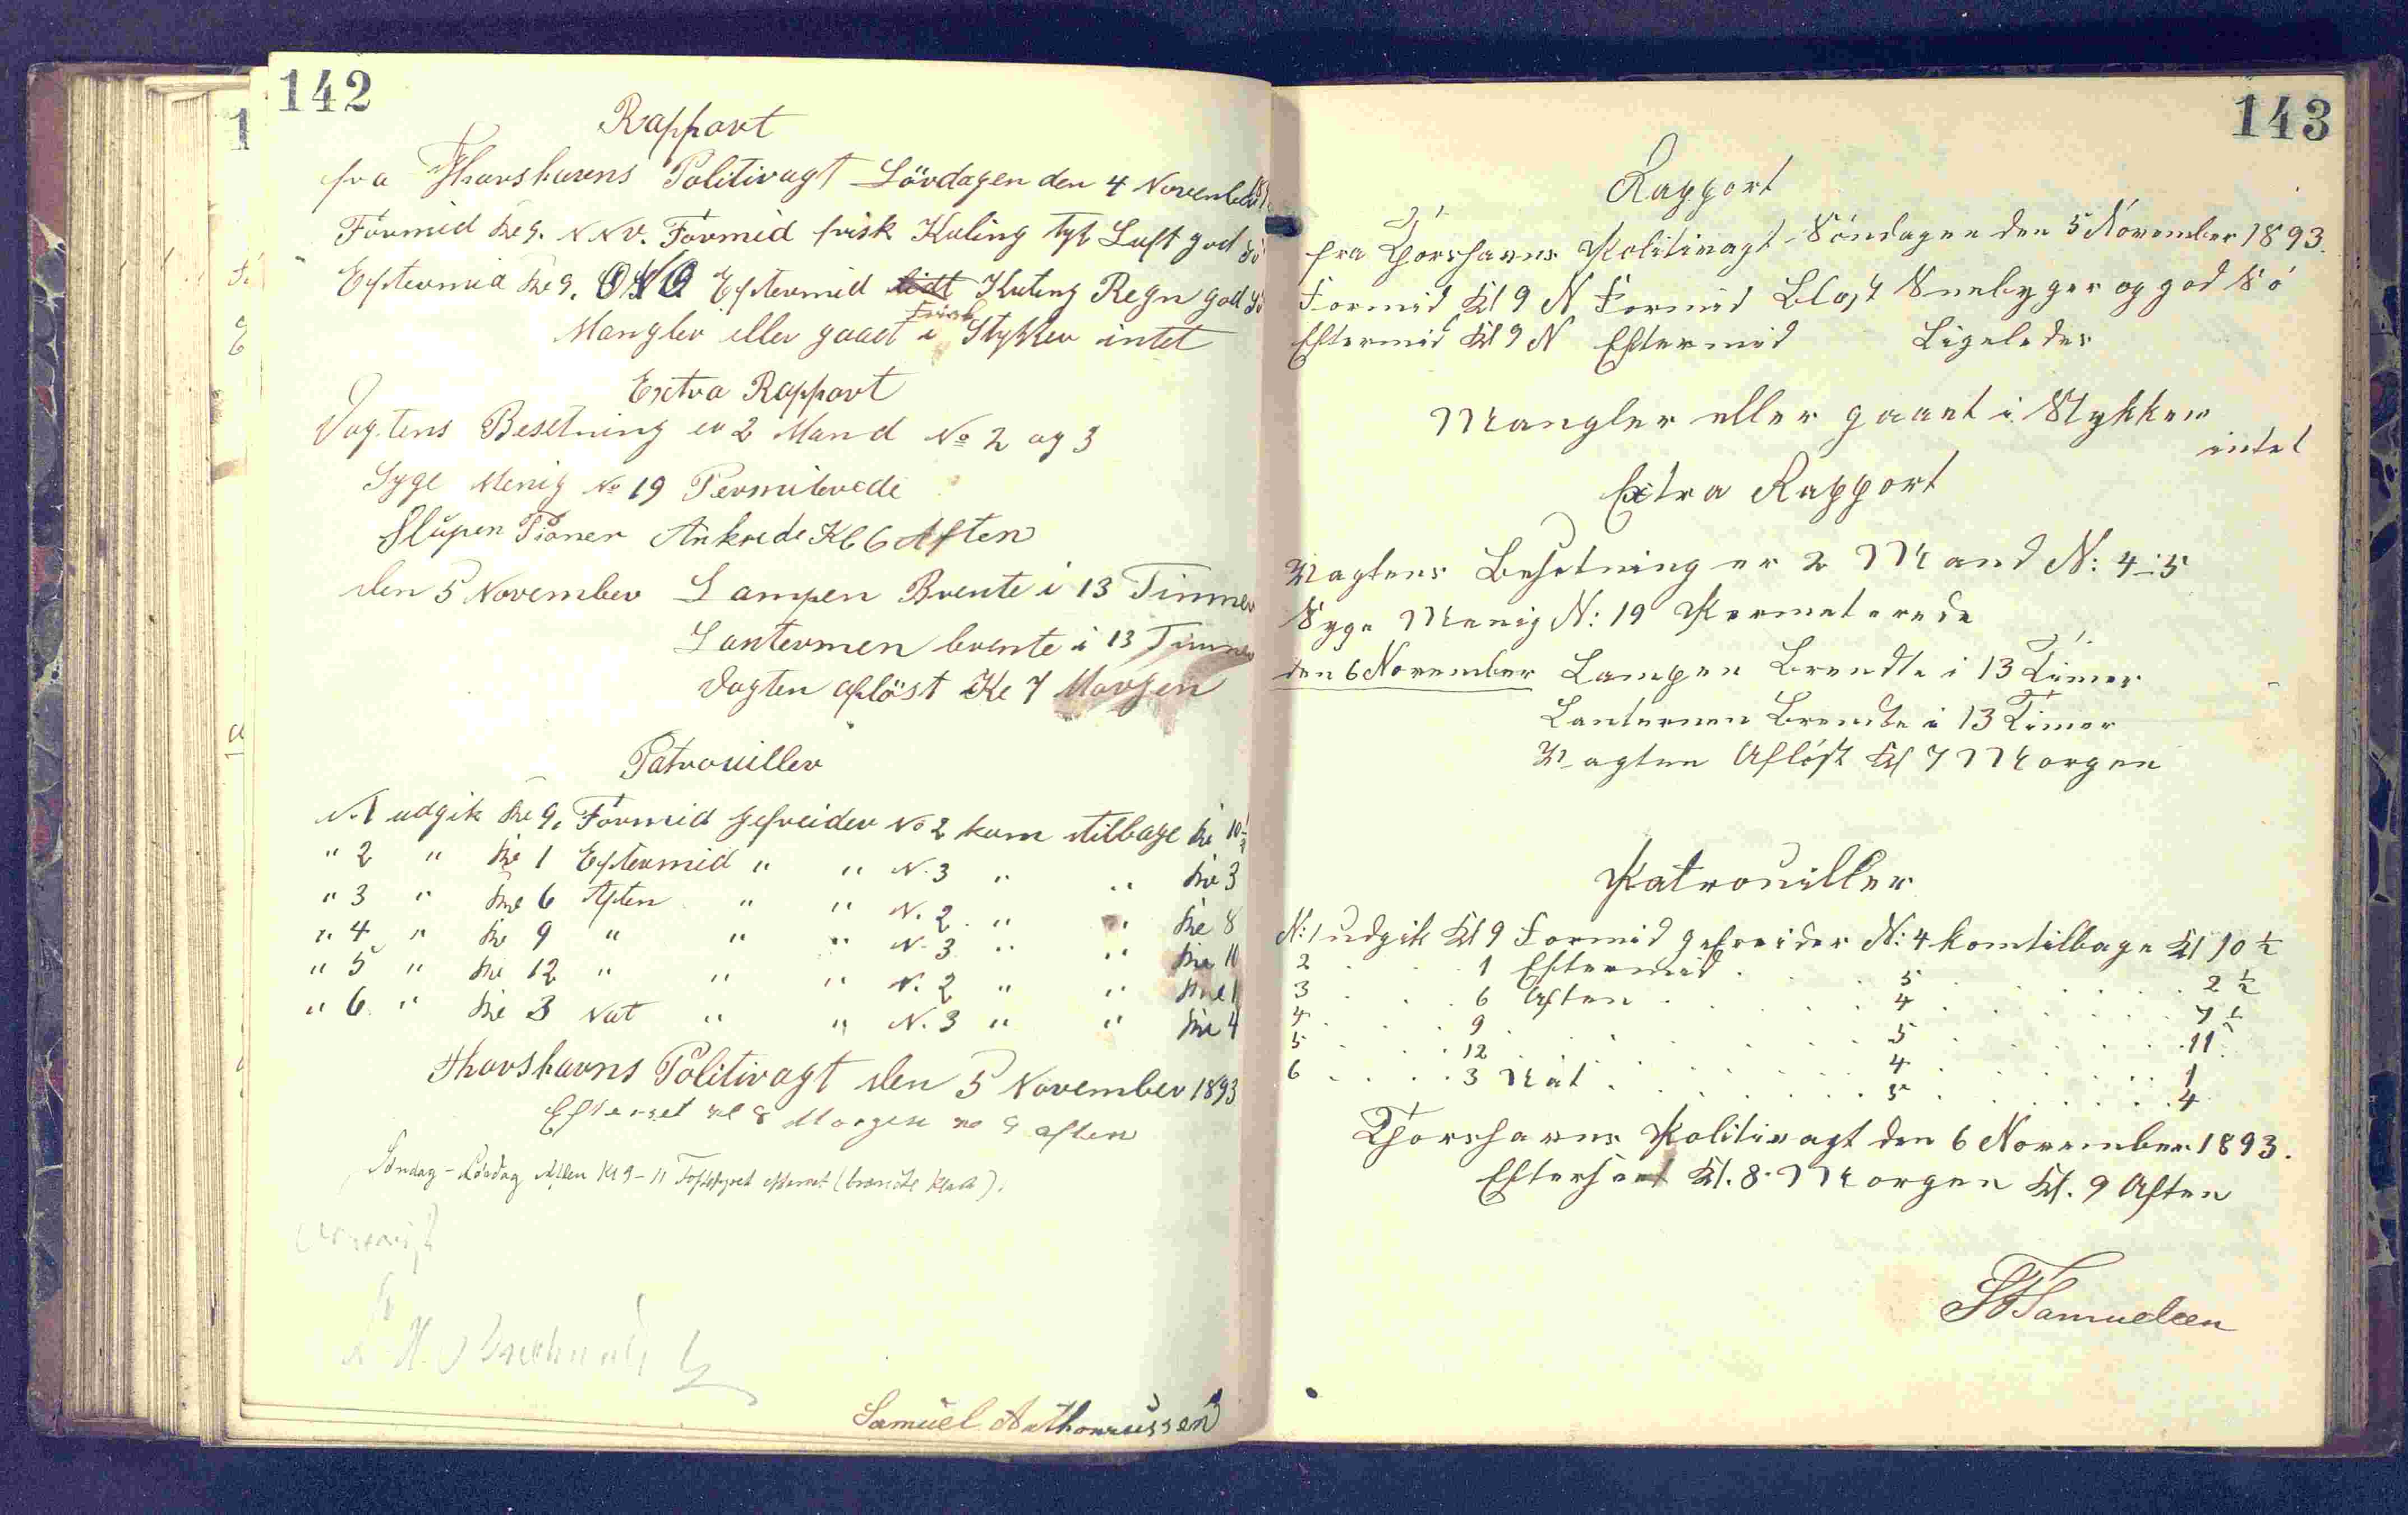 142
Rapport
fra Thorshavens Politivagt Lördagen den 4 November
Formid Kl 9. NNV. Formid frisk Kuling tyk Luft god Sö
Eftermid Kl 9. ONO Eftermid lidt Kuling Regn god Sö
Frisk
Mangler eller gaaet i Stykker intet
Extra Rapport
Vagtens Besetning er 2 Mand No 2 og 3
Syge Menig No 19 Permiterede
Slupen Pioner Ankrede Kl 6 Aften
den 5 November Lampen Brente i 13 Timmer
Lanternen brente i 13 Timmer
Vagten aflöst Kl 7 Morgen
Patrouiller
N. 1 udgik Kl 9. Formid gefreider No 2 kom tilbage Kl 10 1/2
" 2 " Kl 1 Eftermid " " N. 3 " " Kl 3
" 3 " Kl 6 Aften " " N. 2 " " Kl 8
" 4 " Kl 9 " " " N. 3 " " Kl 11
" 5 " Kl 12 " " " N. 2 " " Kl 1
" 6 " Kl 3 Nat " " N. 3 " " Kl 4
Thorshavns Politivagt den 5 November 1893
Efterset Kl 8 Morgen Kl 9 aften
Söndag - Aften Kl 9 - 11 efterset
Samuel Anthoniussen
143
Rapport
fra Thorshavns Politivagt Söndagen den 5 November 1893.
Formid Kl 9 N Formid Blæst Snebyger og god Sö
Eftermid Kl 9 N Eftermid Ligeledes
Mangler eller gaaet i Stykker
intet
Extra Rapport
Vagtens Besetning er 2 Mand N: 4-5
Syge Menig N: 19 Permeterede
den 6 November Lampen Brendte i 13 Timer
Lanternen Brendte i 13 Timer
Vagten Aflöst Kl 7 Morgen
Patrouiller
N: 1 udgik Kl 9 Formid gefreider N: 4 kom tilbage Kl 10 1/2
2 . . . 1 Eftermid . . . 5 . . . 2 1/2
3 . . . 6 Aften . . . 4 . . . 7 1/2
4 . . . 9 . . . 5 . . . 11
5 . . . 12 . . . 4 . . . 1
6 . . . 3 Nat . . . 5 . . . 4
Thorshavns Politivagt den 6 November 1893.
Efterseet Kl. 8 Morgen Kl. 9 Aften
Samuelsen